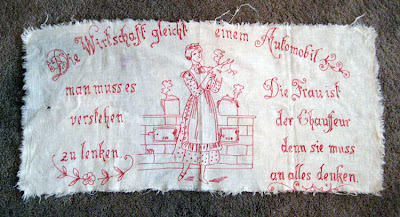 Die Wirtschaft gleicht einem Automobil
man muss es
verstehen
zu lenken.
Die Frau ist
der Chauffeur
denn sie muss
an alles denken.